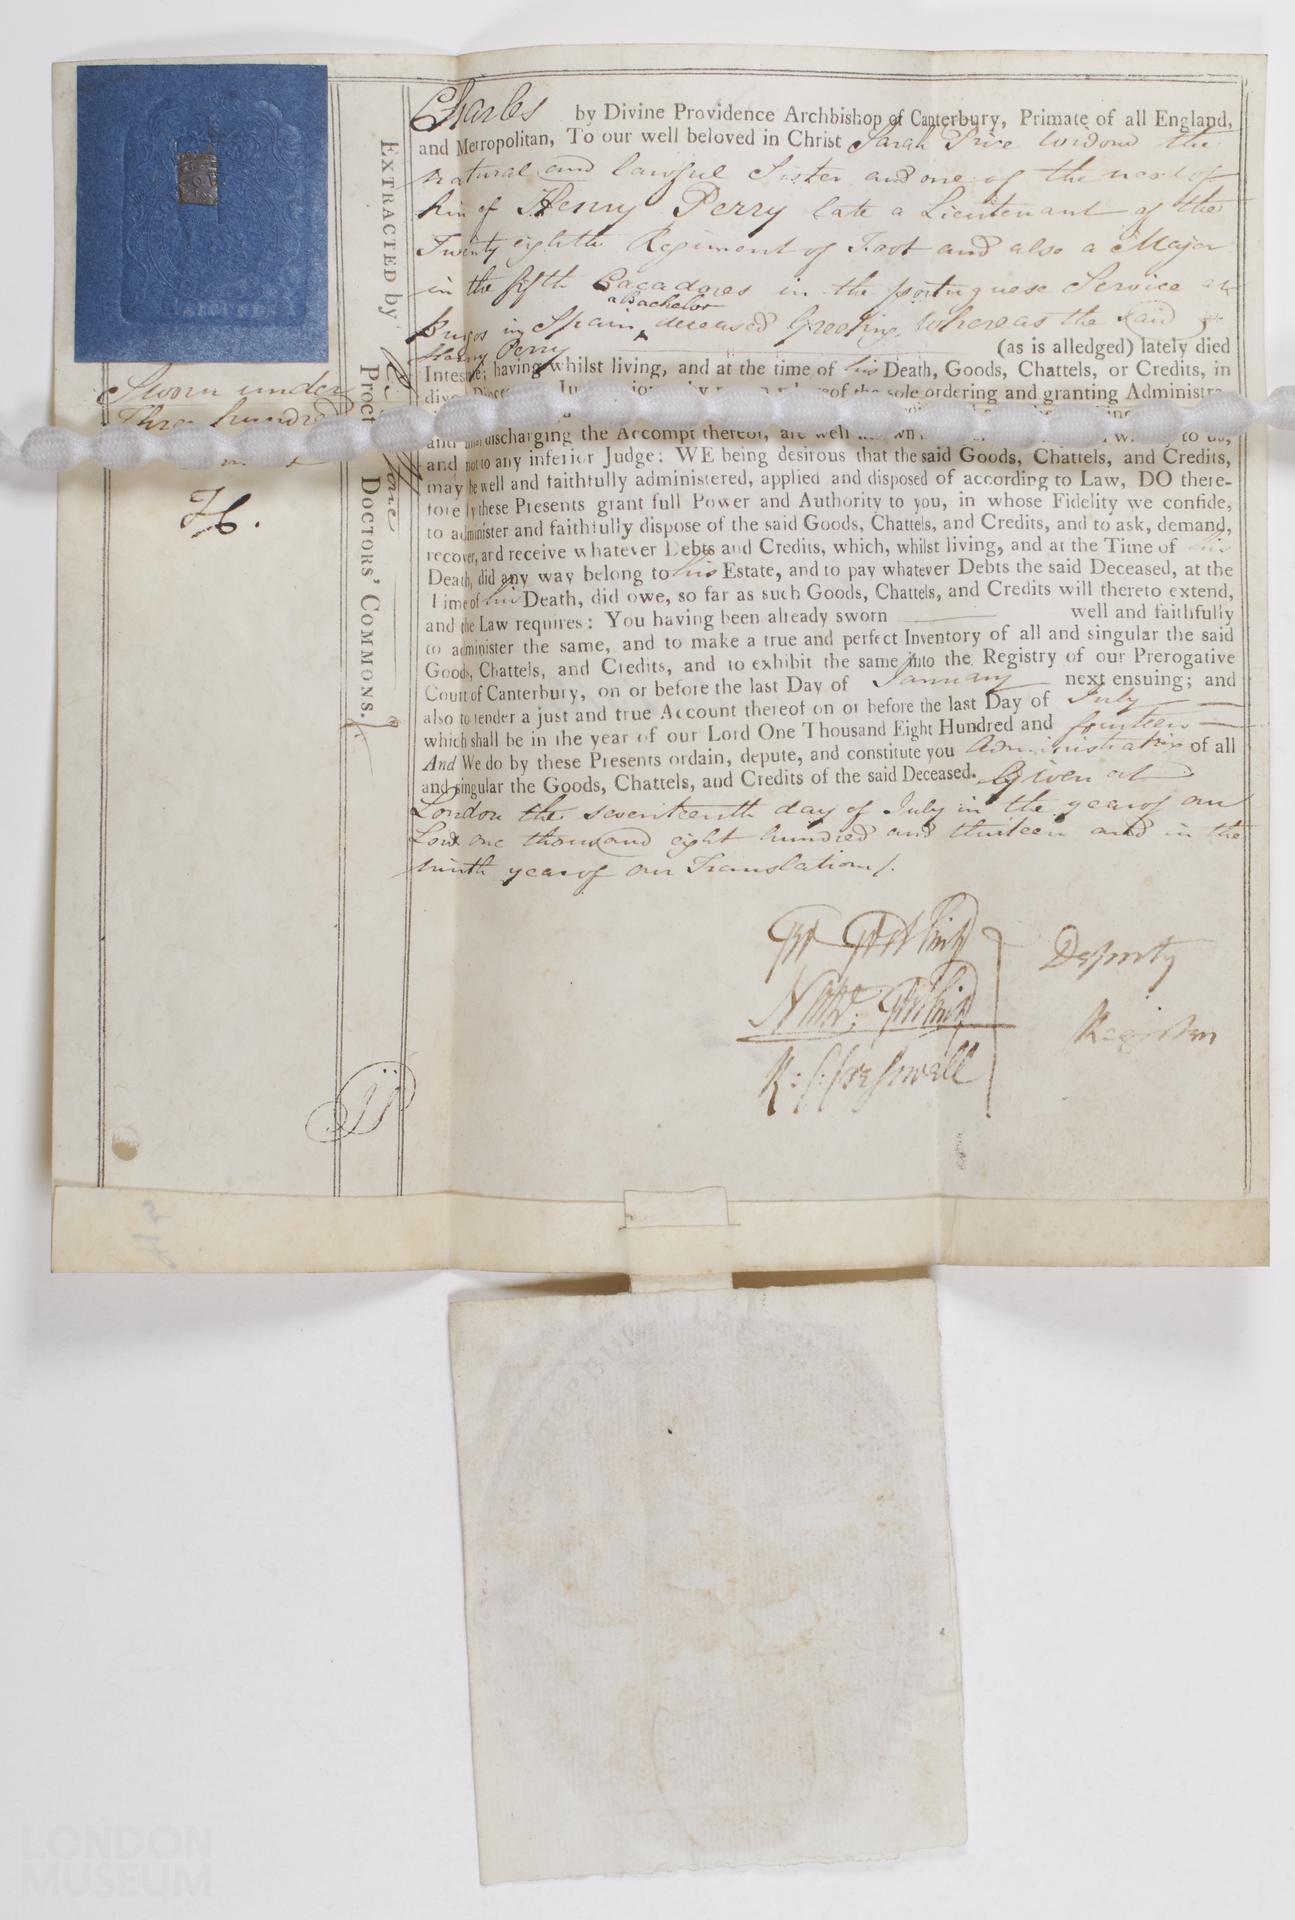 Charles by Divine Providence Archbishop of Canterbury, Primate of all England,
and Metropolitan, To our well beloved in Christ Sarah Price widow the
natural and lawful Sister and one of the next of
kin of Henry Perry late a Lieutenant of the
Twenty eighth Regiment of Foot and also a Major
in the fifth Cacadores in the portuguese Service at
Burgos in Spain a Bachelor deceased Greeting Whereas the said
Henry Perry (as is alledged) lately died
Intestate, having whilst living, and at the time of his Death, Goods, Chattels, or Credits, in
sole ordering and granting Administra-
discharging the Accompt thereof, are well
and not to any inferior Judge: WE being desirous that the said Goods, Chattels, and Credits,
may be well and faithfully administered, applied and disposed of according to Law, DO there-
fore by these Presents grant full Power and Authority to you, in whose Fidelity we confide,
to administer and faithfully dispose of the said Goods, Chattels, and Credits, and to ask, demand,
recover, and receive whatever Debts and Credits, which, whilst living, and at the Time of his
Death, did any way belong to his Estate, and to pay whatever Debts the said Deceased, at the
Time of his Death, did owe, so far as such Goods, Chattels, and Credits will thereto extend,
and the Law requires: You having been already sworn well and faithfully
to administer the same, and to make a true and perfect Inventory of all and singular the said
Goods, Chattels, and Credits, and to exhibit the same into the Registry of our Prerogative
Court of Canterbury, on or before the last Day of January next ensuing; and
also to render a just and true Account thereof on or before the last Day of July
which shall be in the year of our Lord One Thousand Eight Hundred and fourteen
And We do by these Presents ordain, depute, and constitute you Administratrix of all
and singular the Goods, Chattels, and Credits of the said Deceased. Given at
London the seventeenth day of July in the year of our
Lord one thousand eight hundred and thirteen and in the
ninth year of our Translation/.
Deputy
Registers
EXTRACTED by
Proct DOCTORS' COMMONS.
Sworn under
Three hundred
H.
LONDON
MUSEUM